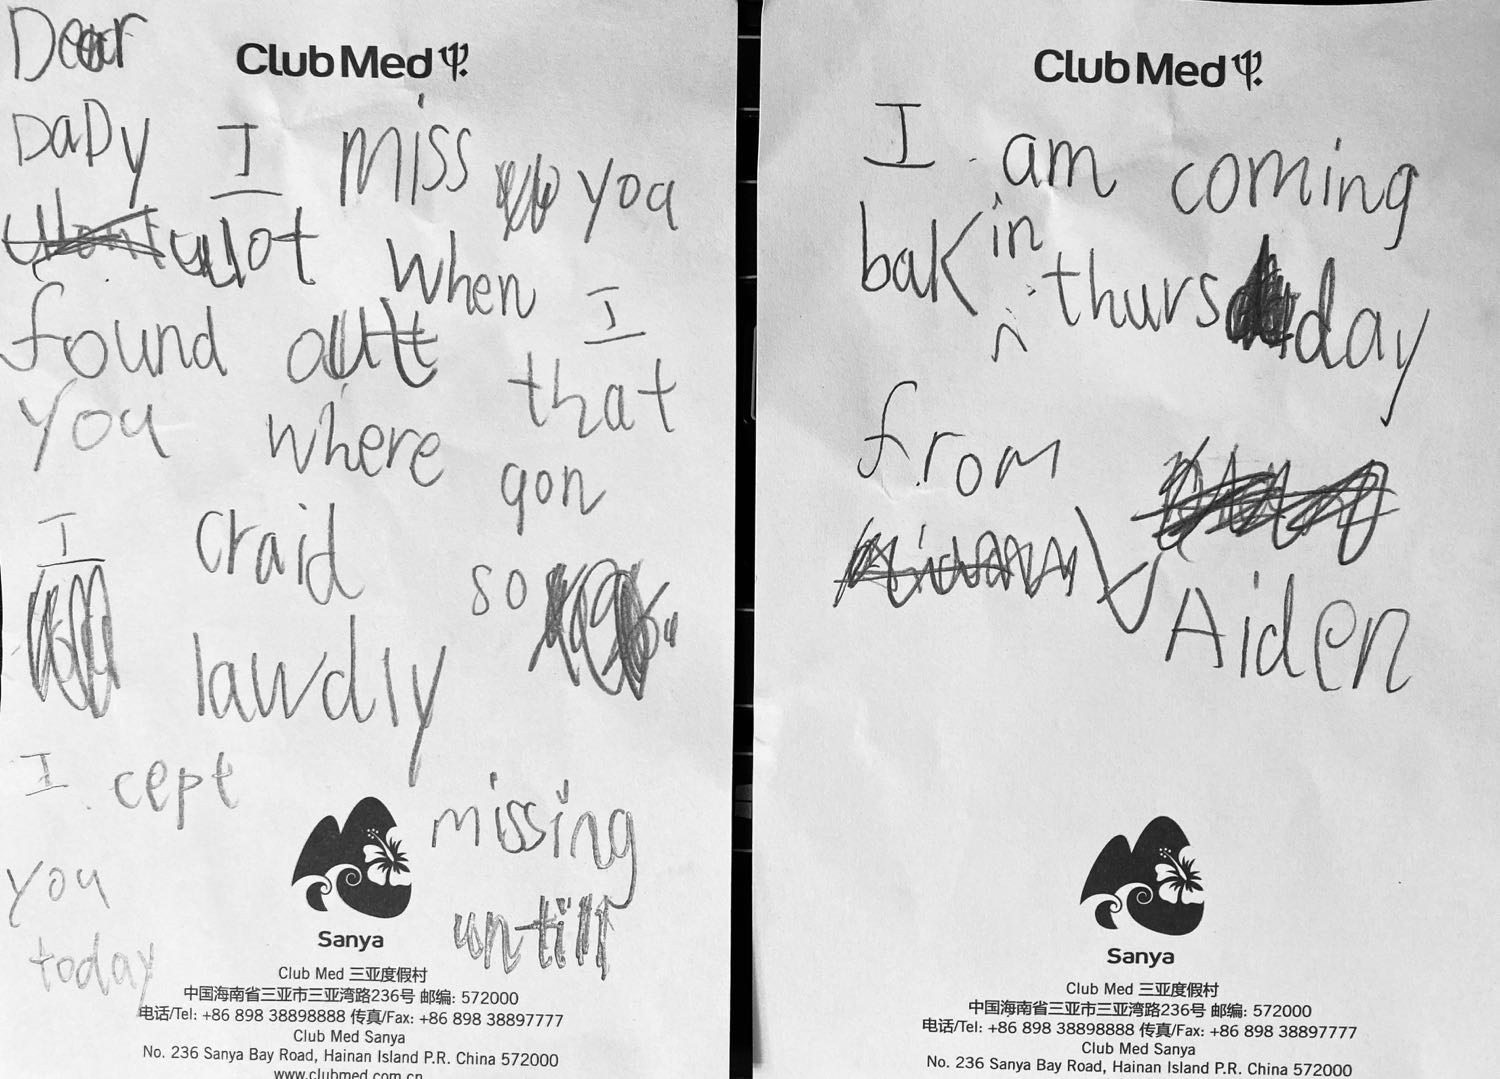 Dear
Club Med
DaDy I miss you
a lot when I
found out that
you where gon
I craid so
lawdly
I cept missing
you untill
today
Sanya
Club Med 三亚度假村
中国海南省三亚市三亚湾路236号 邮编: 572000
电话/Tel: +86 898 38898888 传真/Fax: +86 898 38897777
Club Med Sanya
No. 236 Sanya Bay Road, Hainan Island P.R. China 572000
www.clubmed.com.cn
Club Med
I am coming
bak in thursday
from
Aiden
Sanya
Club Med 三亚度假村
中国海南省三亚市三亚湾路236号 邮编: 572000
电话/Tel: +86 898 38898888 传真/Fax: +86 898 38897777
Club Med Sanya
No. 236 Sanya Bay Road, Hainan Island P.R. China 572000